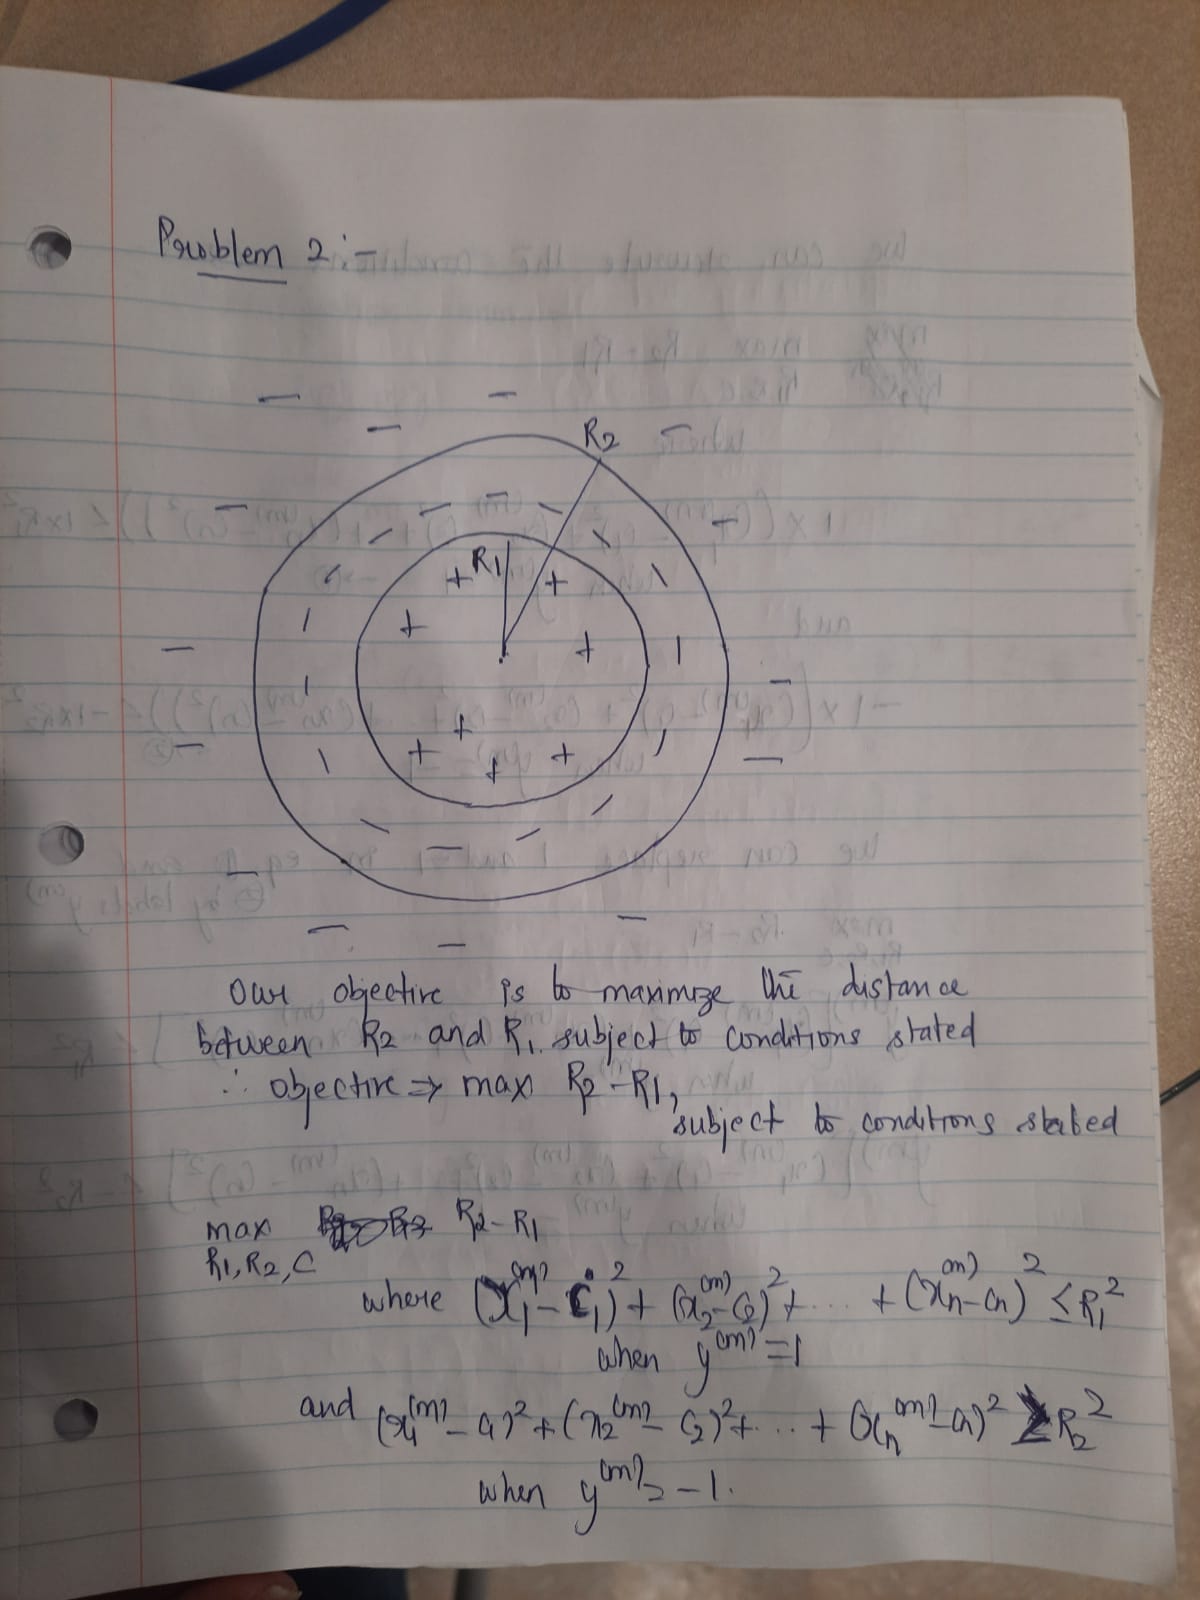 Problem 2 :-
R2
R1
Our objective is to maximize the distance
between R2 and R1, subject to conditions stated
∴ objective ⇒ max R2 - R1,
subject to conditions stated
max R2 - R1
R1, R2, C
where (x₁⁽ᵐ⁾ - c₁)² + (x₂⁽ᵐ⁾ - c₂)² + .... + (xₙ⁽ᵐ⁾ - cₙ)² ≤ R₁²
when y⁽ᵐ⁾ = 1
and (x₁⁽ᵐ⁾ - c₁)² + (x₂⁽ᵐ⁾ - c₂)² + ... + (xₙ⁽ᵐ⁾ - cₙ)² ≥ R₂²
when y⁽ᵐ⁾ = -1.